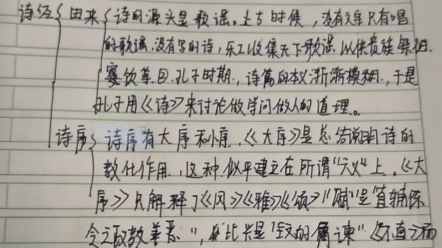 诗经 由来 诗的源头是歌谣。上古时候,没有文字只有唱
的歌谣,没有写的诗,乐工收集天下歌谣,以供贵族祭祖、
宴饮等。孔子时期,诗篇的本义渐渐模糊,于是
孔子用《诗》来讨论做学问做人的道理。
诗序 诗序有大序和小序。《大序》是总的说明诗的
教化作用,这种似乎建立在所谓“六义”上。《大
序》只解释了《风》《雅》《颂》“赋”是“直铺陈
今之政教善恶”,“比”“兴”是